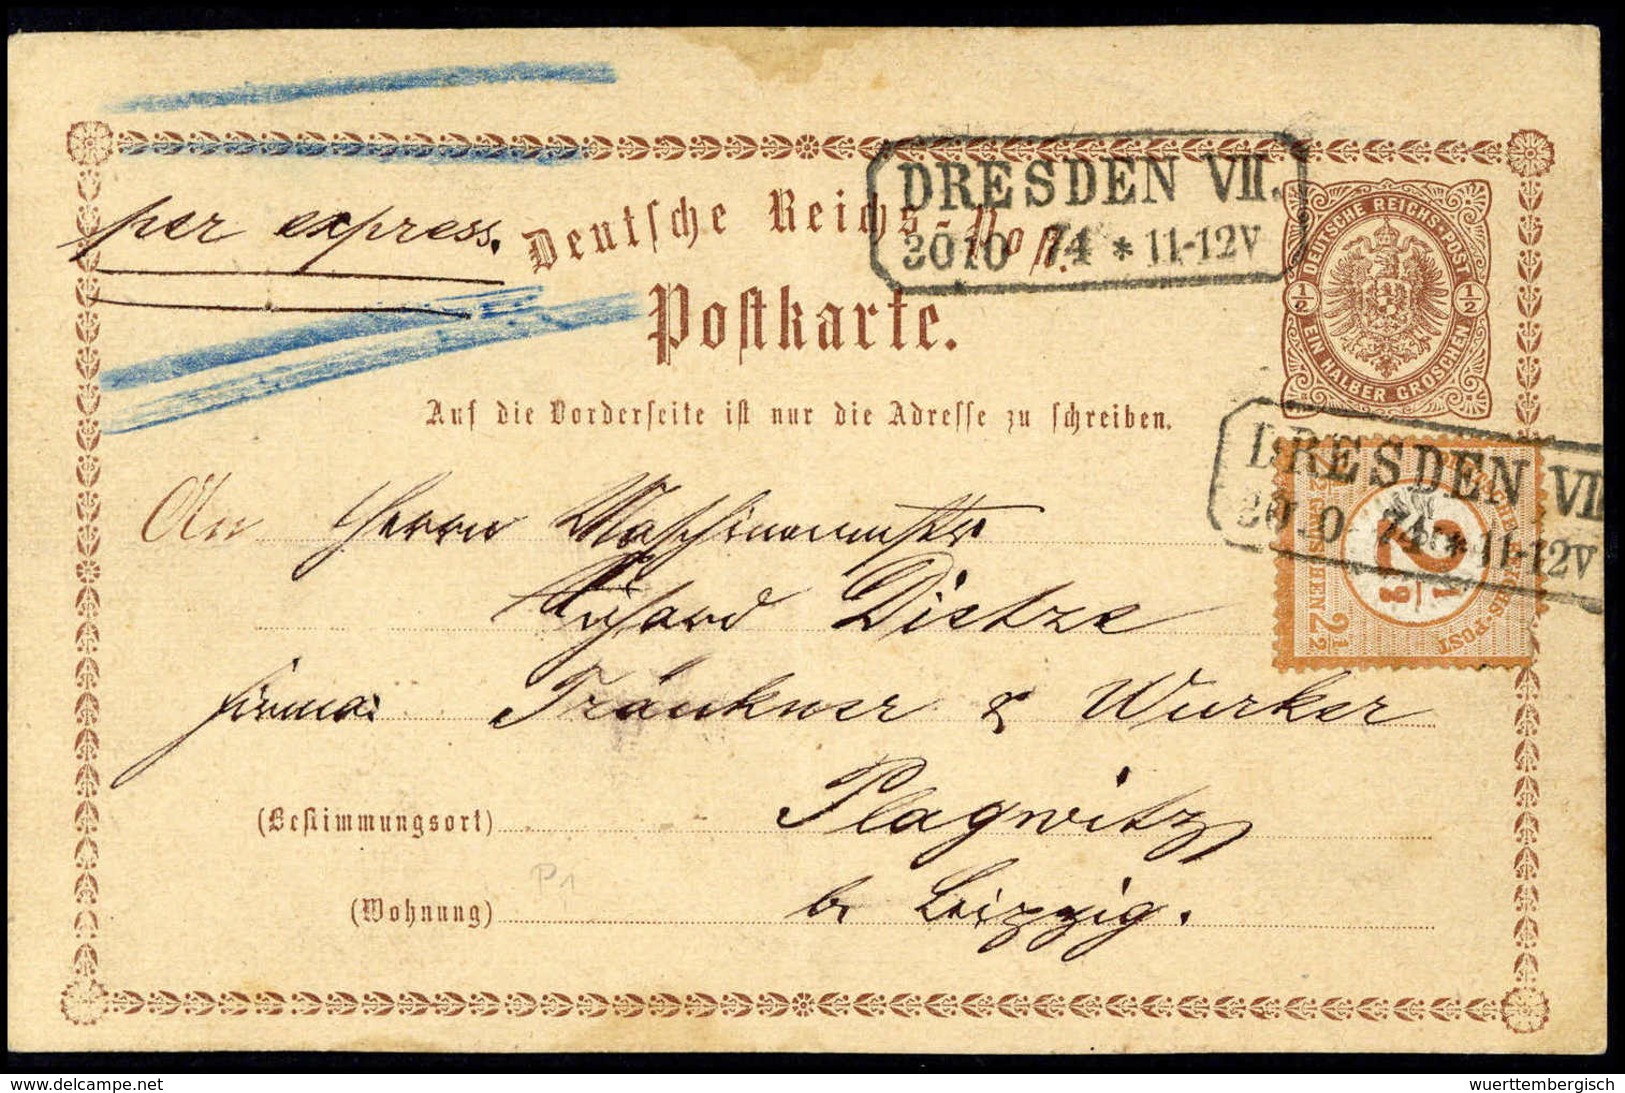 per express.
Deutsche Reichs-Post.
Postkarte.
DRESDEN VII.
30 10 74 * 11-12V
DEUTSCHE REICHS-POST
1/2 1/2
EIN HALBER GROSCHEN
Auf die Vorderseite ist nur die Adresse zu schreiben.
DRESDEN VII
30 10 74 * 11-12V
2 1/2
An Herrn Maschinenmstr
Richard Dietze
firma: Tränkner & Wurker
(Bestimmungsort) Plagwitz
P1
(Wohnung) b. Leipzig.
www.delcampe.net
wuerttembergisch